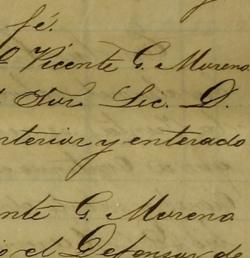 fé.
Vicente G. Moreno
Sor. Lic. D.
nterior y enterado
nte G. Moreno
el Defensor de